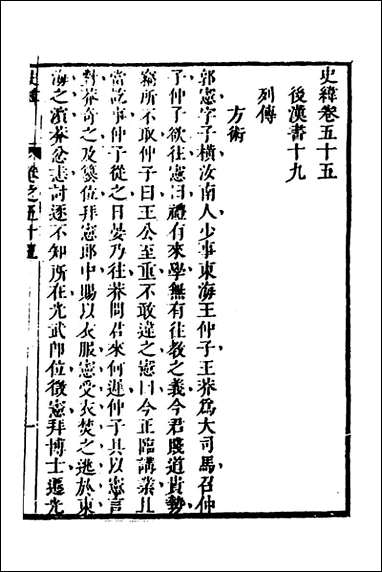 史緯卷五十五
後漢書十九
列傳
方術
郭憲字子橫汝南人少事東海王仲子王莽爲大司馬召仲
子仲子欲往憲曰禮有來學無有往教之義今君賤道貴勢
竊所不取仲子曰王公至重不敢違之憲曰今正臨講業且
當訖事仲子從之日晏乃往莽問君來何遲仲子具以憲言
對莽奇之及篡位拜憲郎中賜以衣服憲受衣焚之逃於東
海之濱莽忿恚討逐不知所在光武卽位徵憲拜博士遷光
卷之五十五